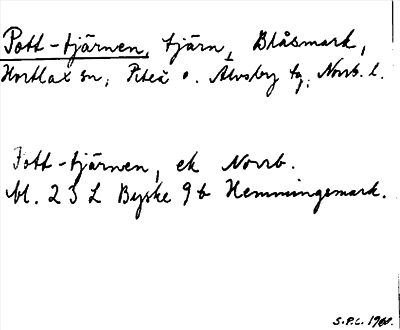 Pott-tjärnen, tjärn, Blåsmark,
Hortlax sn, Piteå o. Älvsby tg, Norrb. l.
Pott-tjärnen, ek Norrb.
bl. 23 L Byske 9 b Hemmingsmark.
S.P.L. 1960.